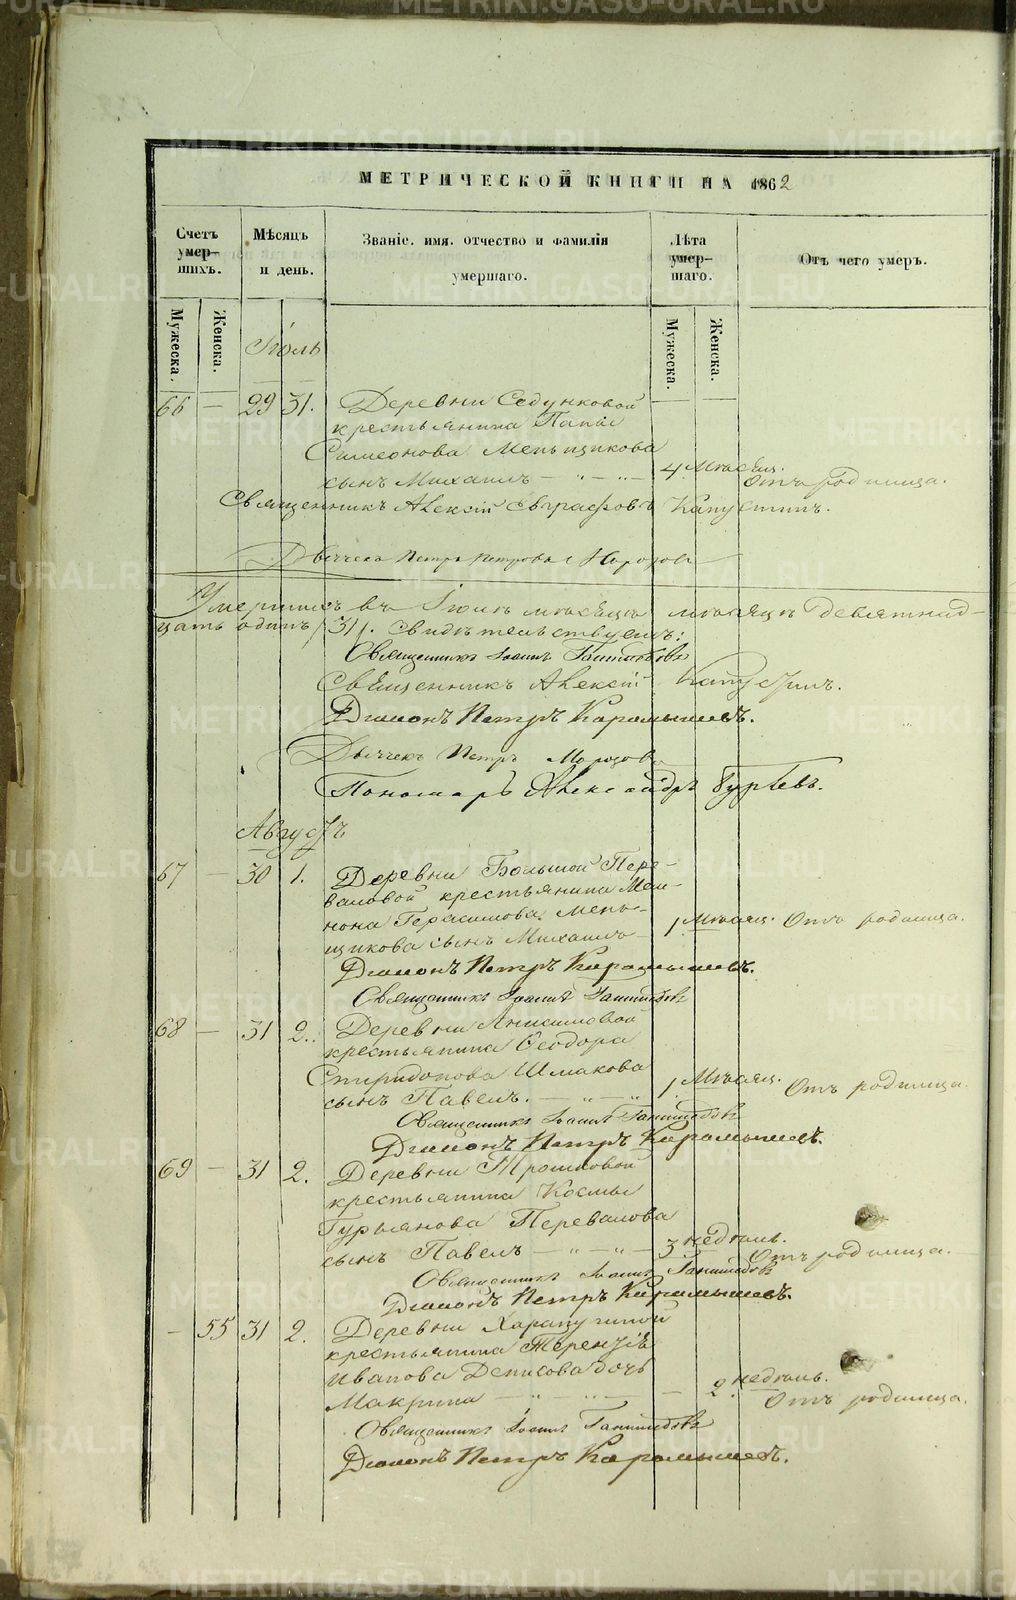 МЕТРИЧЕСКОЙ КНИГИ НА 1862
Счетъ умер-шихъ.
Мѣсяцъ и день.
Званіе. имя. отчество и фамилія умершаго.
Лѣта умер-шаго.
Отъ чего умеръ.
Мужеска.
Женска.
Мужеска.
Женска.
Іюль
66 — 29 31. Деревни Седунковой
крестьянина
Симеонова Меньщикова
сынъ Михаилъ — " — " — 4. Мѣсяц. Отъ родимца.
Священникъ Алексій Евграфовъ Капустинъ.
Дьячекъ Петръ Петровъ Морозовъ
Умершихъ въ Іюлѣ мѣсяцѣ
цать одинъ /31/. Свидѣтельствуемъ:
Священникъ Іоаннъ
Священникъ Алексій Капустинъ.
Діаконъ Петръ Карамышевъ.
Дьячекъ Петръ Морозовъ
Пономарь Александръ Гурьевъ.
Августъ
67 — 30 1. Деревни Большой Пере-
валовой крестьянина Меи-
нона Герасимова Мень-
щикова сынъ Михаилъ — 1 Мѣсяц. Отъ родимца.
Діаконъ Петръ Карамышевъ.
Священникъ Іоаннъ
68 — 31 2. Деревни Анисимовой
крестьянина Ѳеодора
Спиридонова Шмакова
сынъ Павелъ. — " — " 1 Мѣсяц. Отъ родимца.
Священникъ Іоаннъ
Діаконъ Петръ Карамышевъ.
69 — 31 2. Деревни Трошковой
крестьянина Космы
Гурьянова Перевалова
сынъ Павелъ — " — " — 3 недѣль. Отъ родимца.
Священникъ Іоаннъ
Діаконъ Петръ Карамышевъ.
— 55 31 2. Деревни
крестьянина Терентія
Иванова Денисова дочь
Макрина — " — " — 2. недѣль. Отъ родимца.
Священникъ Іоаннъ
Діаконъ Петръ Карамышевъ.
METRIKI.GASO-URAL.RU